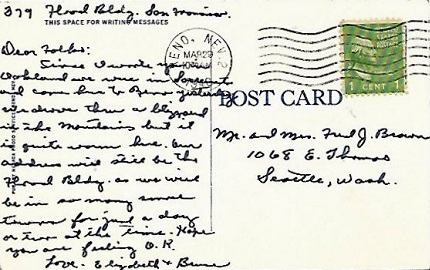 379 Flood Bldg. San Francisco.
THIS SPACE FOR WRITING MESSAGES
Dear Folks:
Since I wrote you
Oakland we were in Sacramento
and came here to Reno yesterday
we drove thru a blizzard
in the mountains but it
is quite warm here. Our
address will still be the
Flood Bldg. as we will
be in so many small
towns for just a day
or two at the time. Hope
you are feeling O.K.
Love - Elizabeth & Bruce
RENO, NEV. 2
MAR 29
10 AM
POST CARD
1 CENT 1
Mr. and Mrs. Fred J. Brown
1068 E. Thomas
Seattle, Wash.